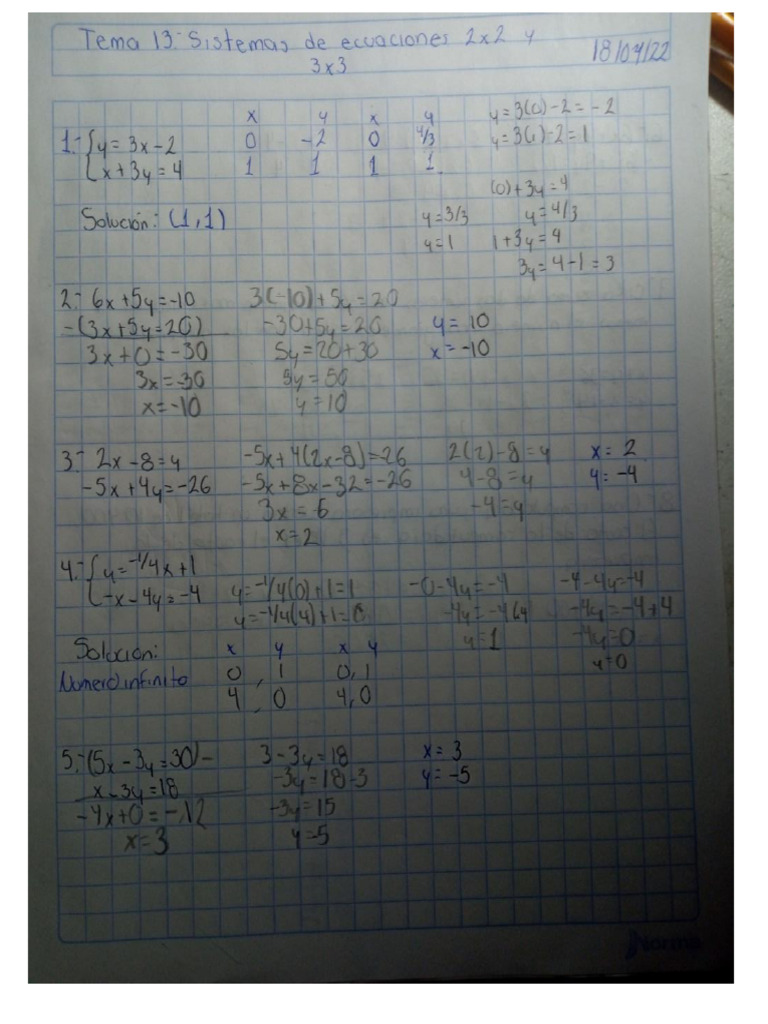 Tema 13: Sistemas de ecuaciones 2x2 y
3x3
18/04/22
x y x y
1.- y = 3x - 2 0 -2 0 4/3
x + 3y = 4 1 1 1 1
y = 3(0) - 2 = -2
y = 3(1) - 2 = 1
Solución: (1, 1)
(0) + 3y = 4
y = 3/3 y = 4/3
y = 1 1 + 3y = 4
3y = 4 - 1 = 3
2.- 6x + 5y = -10 3(-10) + 5y = 20
-(3x + 5y = 20) -30 + 5y = 20 y = 10
3x + 0 = -30 5y = 20 + 30 x = -10
3x = -30 5y = 50
x = -10 y = 10
3.- 2x - 8 = y -5x + 4(2x - 8) = -26 2(2) - 8 = y x = 2
-5x + 4y = -26 -5x + 8x - 32 = -26 4 - 8 = y y = -4
3x = 6 -4 = y
x = 2
4.- y = -1/4x + 1
-x - 4y = -4 y = -1/4(0) + 1 = 1 -0 - 4y = -4 -4 - 4y = -4
y = -1/4(4) + 1 = 0 -4y = -4 -4y = -4 + 4
y = 1 -4y = 0
y = 0
Solución: x y x y
Numero infinito 0, 1 0, 1
4, 0 4, 0
5.- (5x - 3y = 30) - 3 - 3y = 18 x = 3
x - 3y = 18 -3y = 18 - 3 y = -5
-4x + 0 = -12 -3y = 15
x = 3 y = 5
Norma